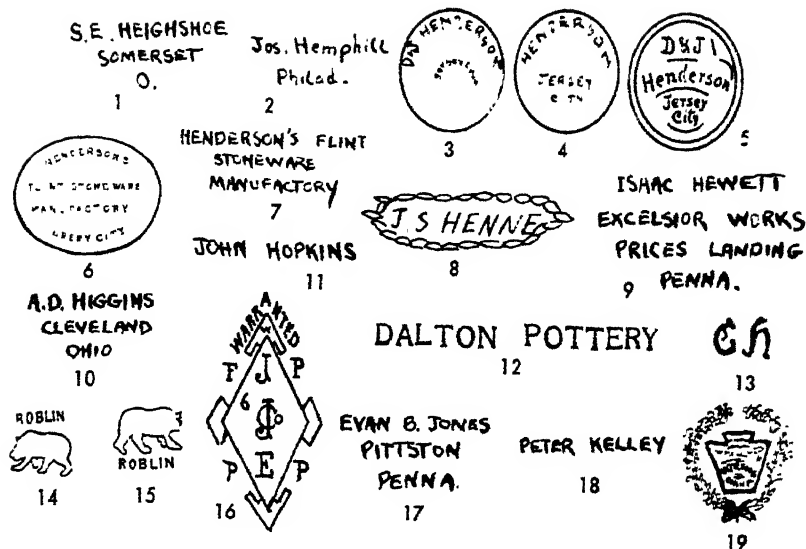 S.E. HEIGHSHOE
SOMERSET
O.
1
Jos. Hemphill
Philad.
2
D&J HENDERSON
3
HENDERSON
JERSEY
CITY
4
D&J
Henderson
Jersey
City
5
HENDERSON'S
FLINT STONEWARE
MANUFACTORY
JERSEY CITY
6
HENDERSON'S FLINT
STONEWARE
MANUFACTORY
7
J S HENNE
8
ISHAC HEWETT
EXCELSIOR WORKS
PRICES LANDING
PENNA.
9
A.D. HIGGINS
CLEVELAND
OHIO
10
JOHN HOPKINS
11
DALTON POTTERY
12
C H
13
ROBLIN
14
ROBLIN
15
WARRANTED
F J P
6
J Co
P E P
16
EVAN B. JONES
PITTSTON
PENNA.
17
PETER KELLEY
18
19